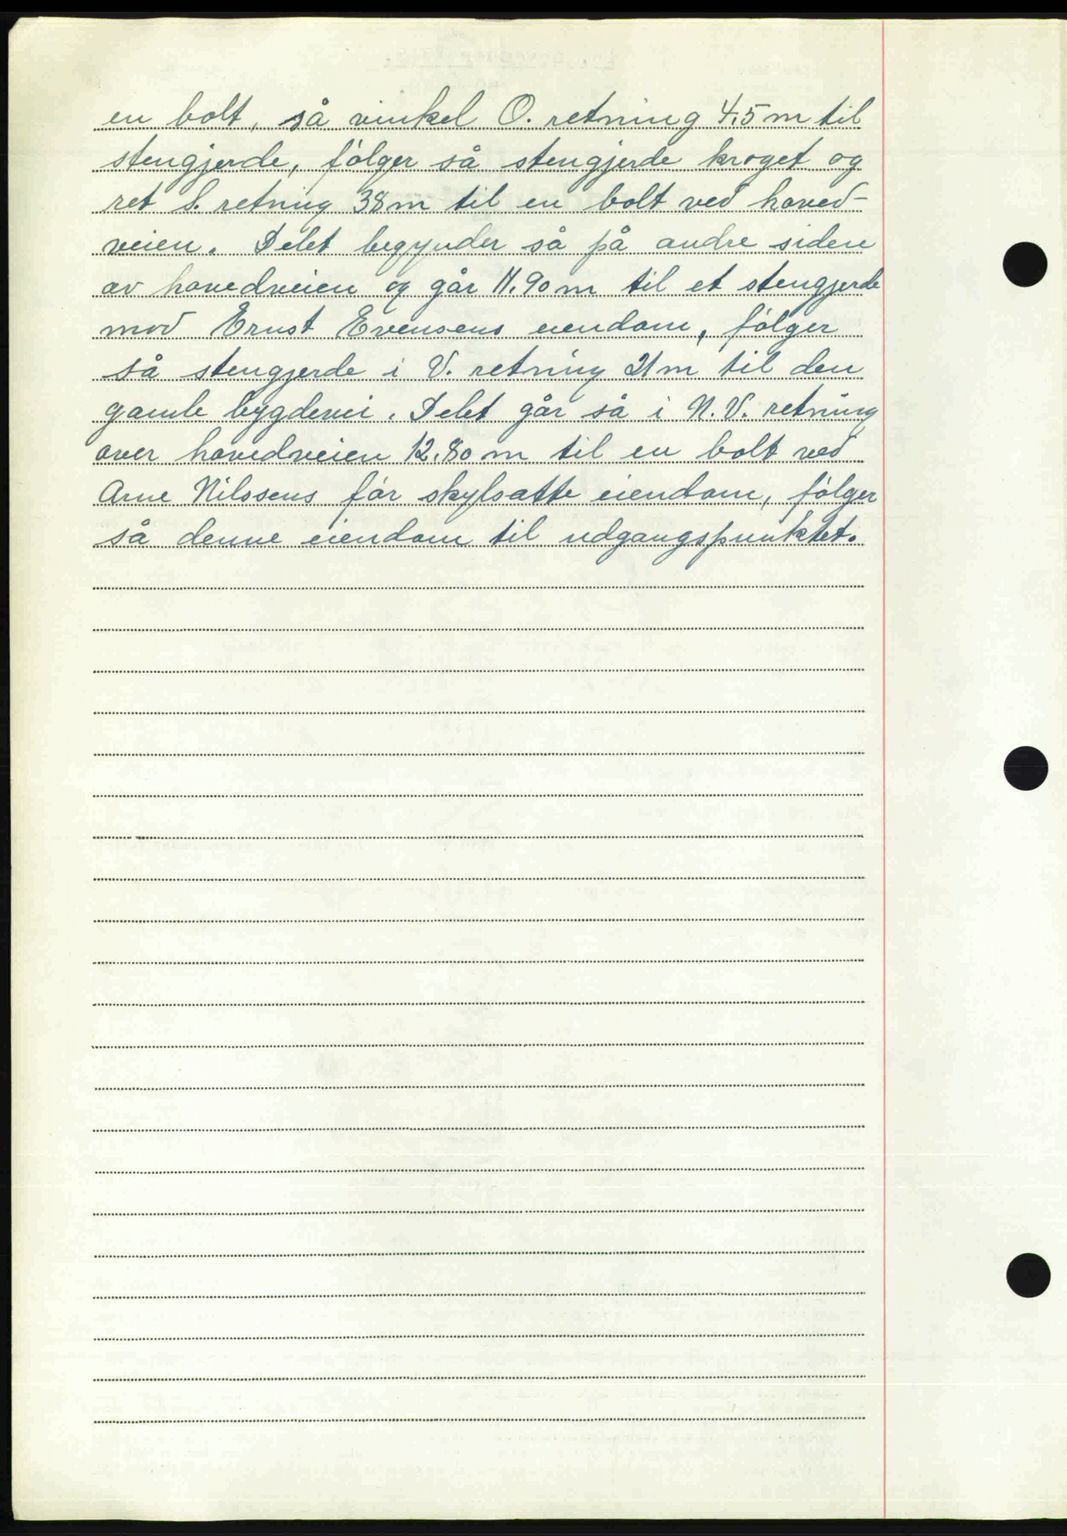 en bolt, så vinkel O. retning 4.5 m til
stengjerde, følger så stengjerde kroget og
ret S. retning 38 m til en bolt ved hoved-
veien. Delet begynder så på andre siden
av hovedveien og går 11.90 m til et stengjerde
mod Ernst Evensens eiendom, følger
så stengjerde i V. retning 21 m til den
gamle bygdevei. Delet går så i N.V. retning
over hovedveien 12.80 m til en bolt ved
Arne Nilssens før skylsatte eiendom, følger
så denne eiendom til udgangspunktet.